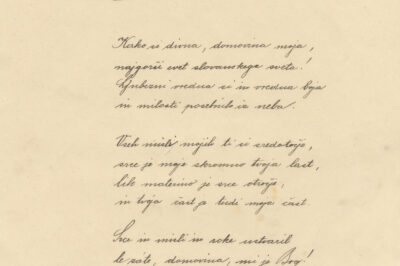 Kako si divna, domovina moja,
najgorši cvet slovanskega sveta!
Ljubezni vredna si in vredna boja
in milosti posebnih iz neba.
Vseh misli mojih ti si središče,
srce je moje skromno tvoja last,
kih materino je srce otroče,
in tvoja čast je tudi moja čast.
Srce in misli in roke ustvaril
le zate, domovina, mi je Bog!